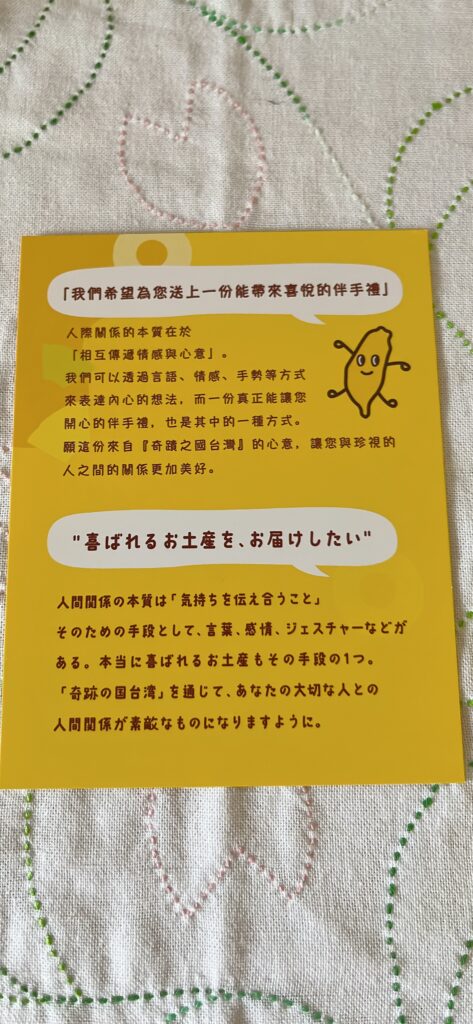 「我們希望為您送上一份能帶來喜悅的伴手禮」
人際關係的本質在於
「相互傳遞情感與心意」。
我們可以透過言語、情感、手勢等方式
來表達內心的想法，而一份真正能讓您
開心的伴手禮，也是其中的一種方式。
願這份來自『奇蹟之國台灣』的心意，讓您與珍視的
人之間的關係更加美好。
"喜ばれるお土産を、お届けしたい"
人間関係の本質は「気持ちを伝え合うこと」
そのための手段として、言葉、感情、ジェスチャーなどが
ある。本当に喜ばれるお土産もその手段の1つ。
「奇跡の国台湾」を通じて、あなたの大切な人との
人間関係が素敵なものになりますように。